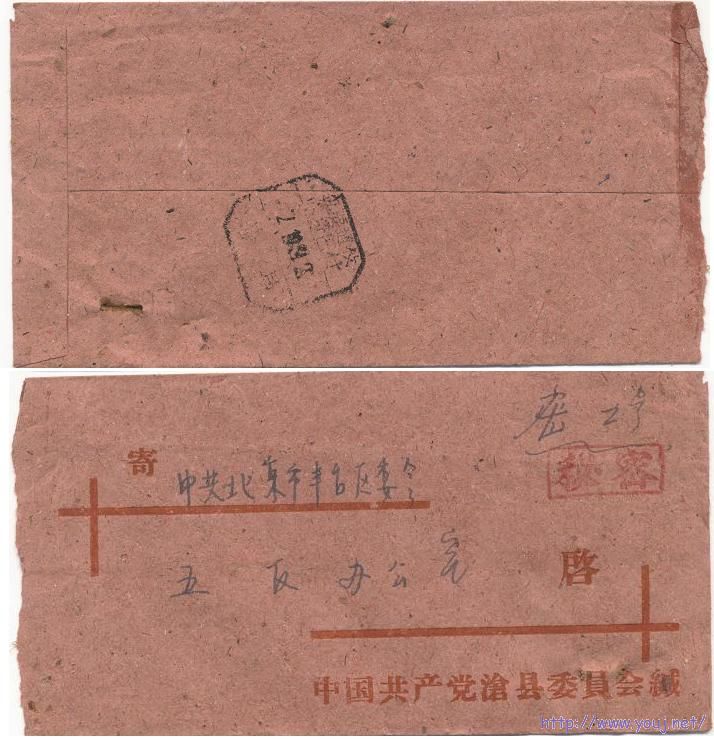 密
秘密
寄
中共北京市丰台区委会
五反办公室
啓
中国共产党滄县委員会緘
http://www.youj.net/